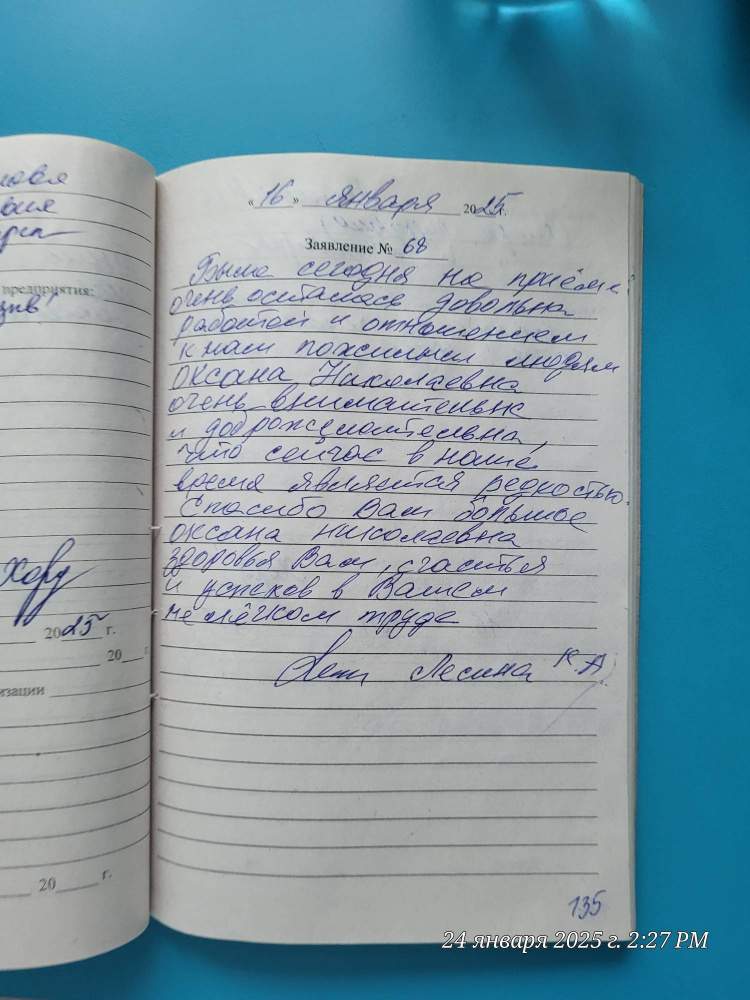 предприятия:
Хору
2025 г.
20 г.
20 г.
«16» января 2025г.
Заявление № 68
Была сегодня на приёме
очень осталась довольна
работой и отношением
к нам пожилым людям
Оксана Николаевна
очень внимательна
и доброжелательна,
что сейчас в наше
время является редкостью.
Спасибо Вам большое
Оксана Николаевна
здоровья Вам, счастья
и успехов в Вашем
не лёгком труде
Лесина К.А.
135
24 января 2025 г. 2:27 PM